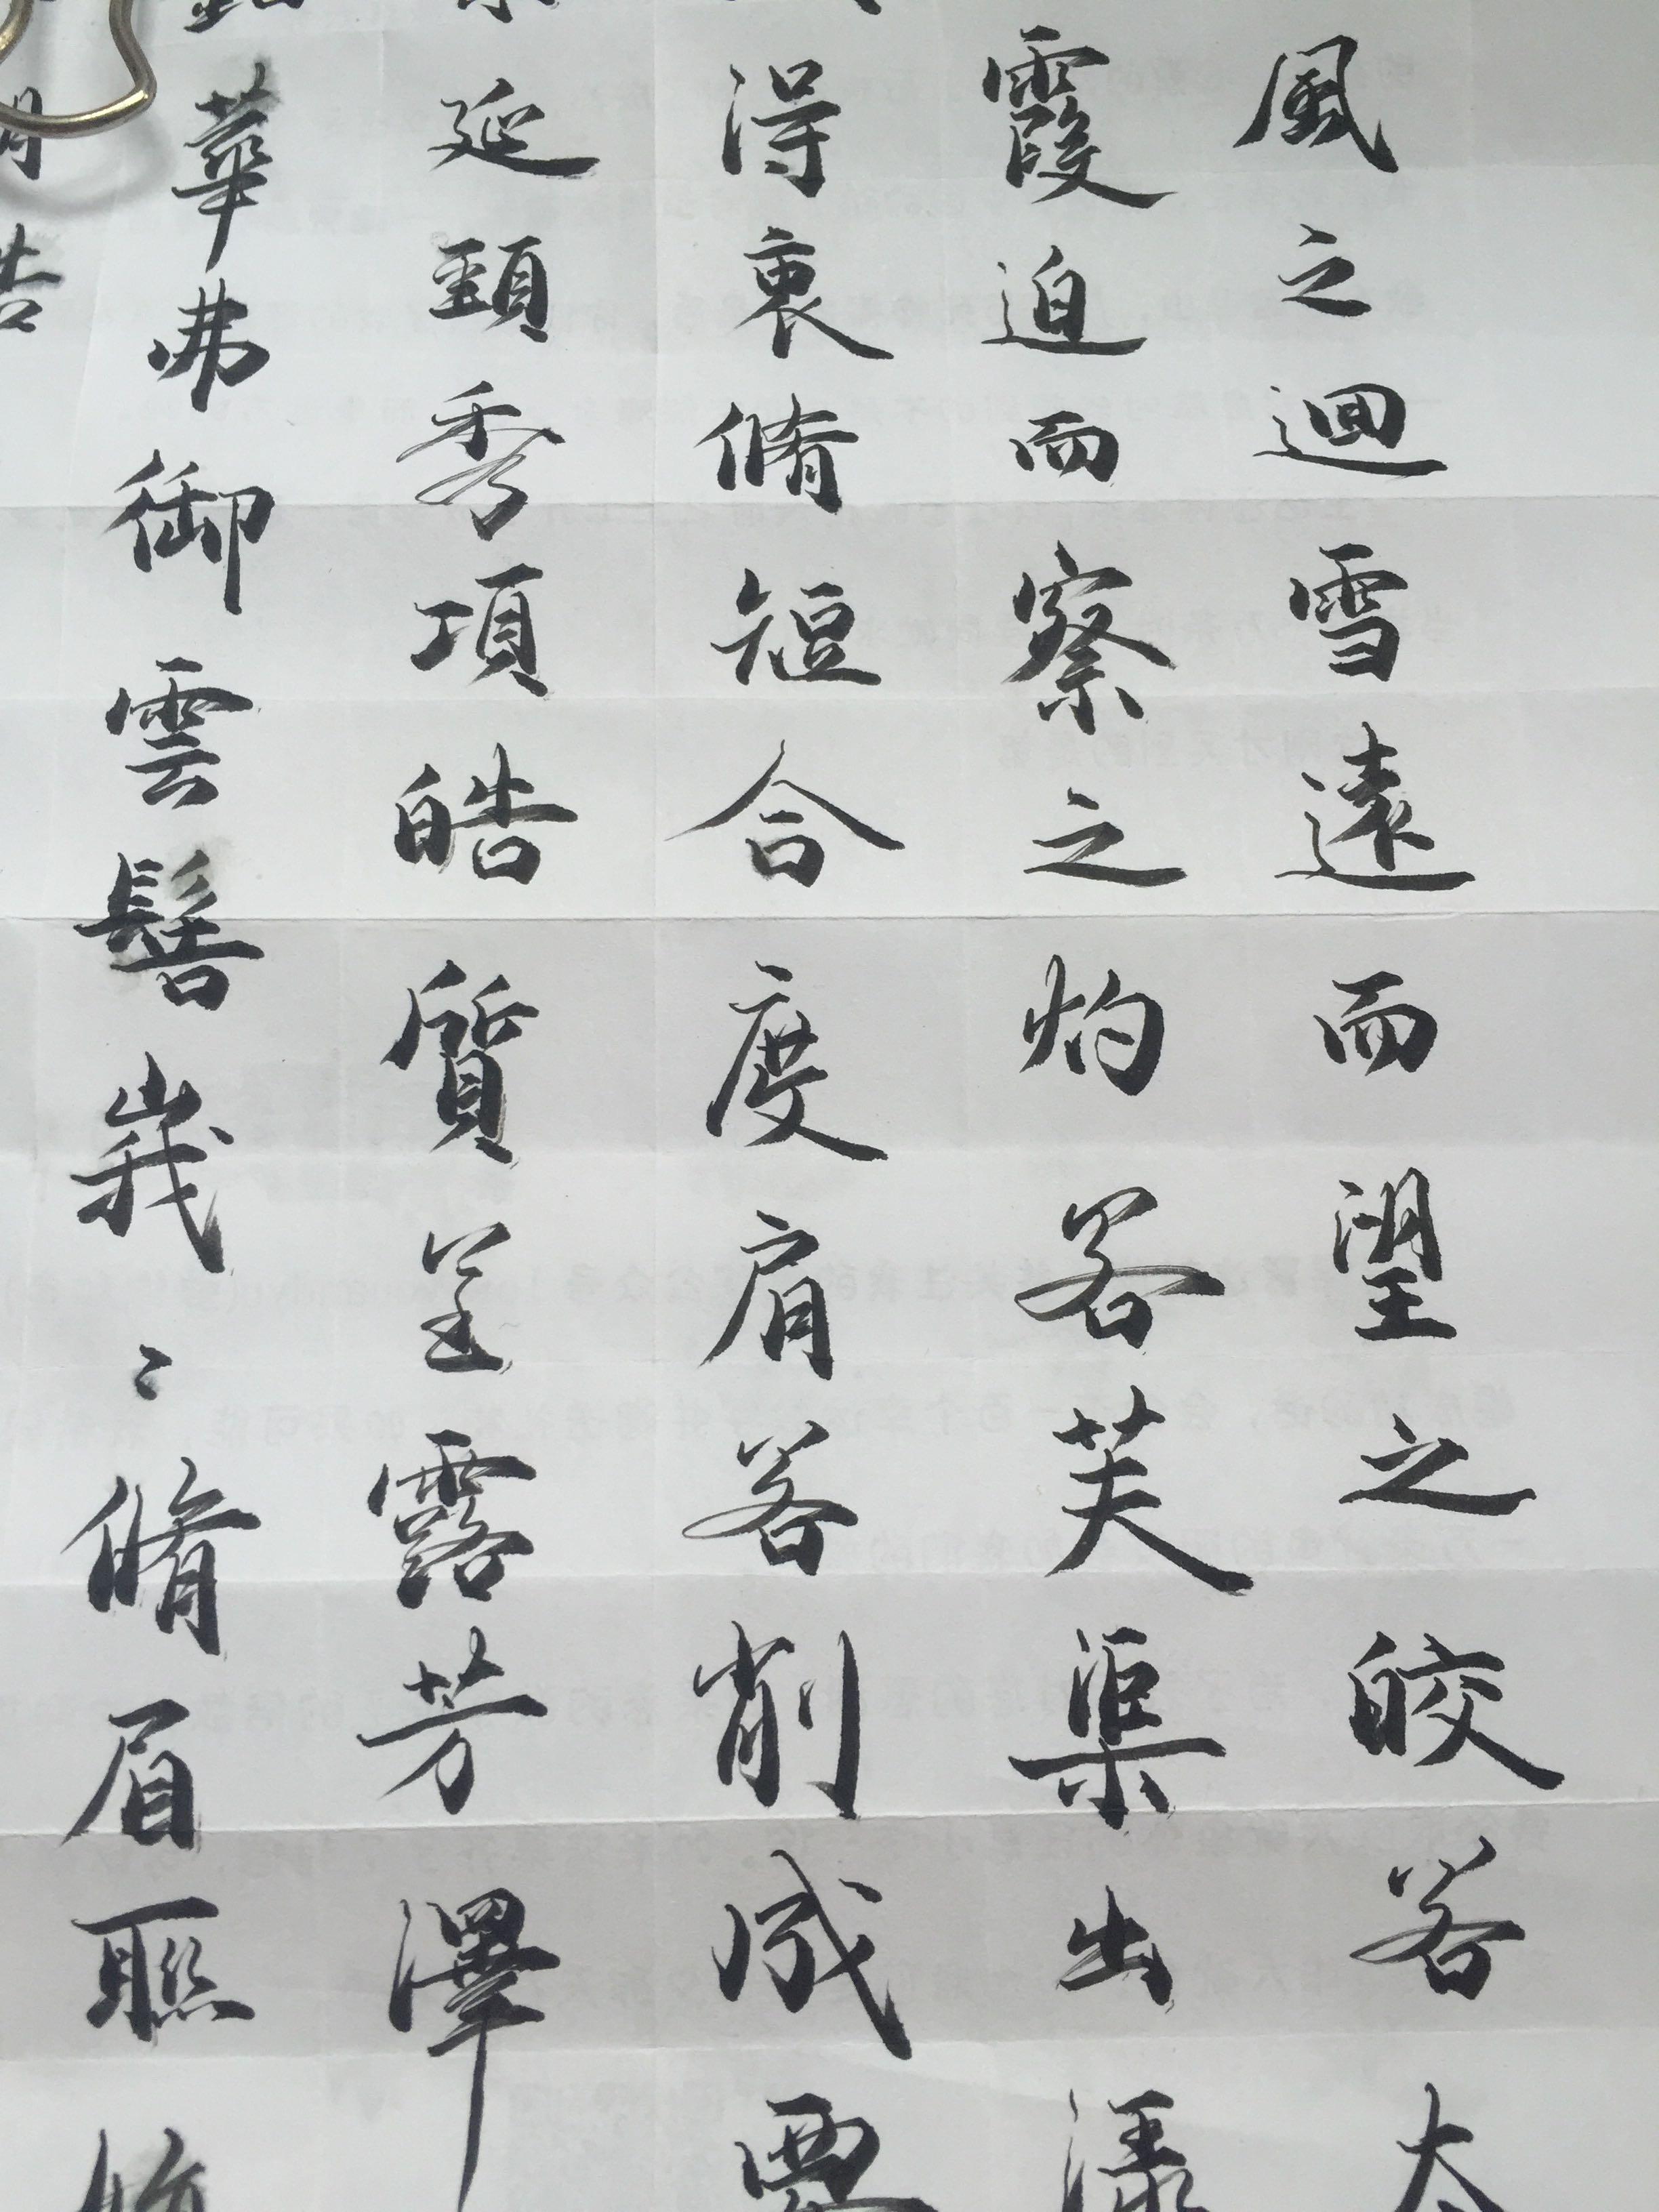 風之迴雪遠而望之皎若太
霞迫而察之灼若芙渠出
淂衷脩短合度肩若削成
延頸秀項皓質呈露芳澤
華弗御雲髻峩〻脩眉聯